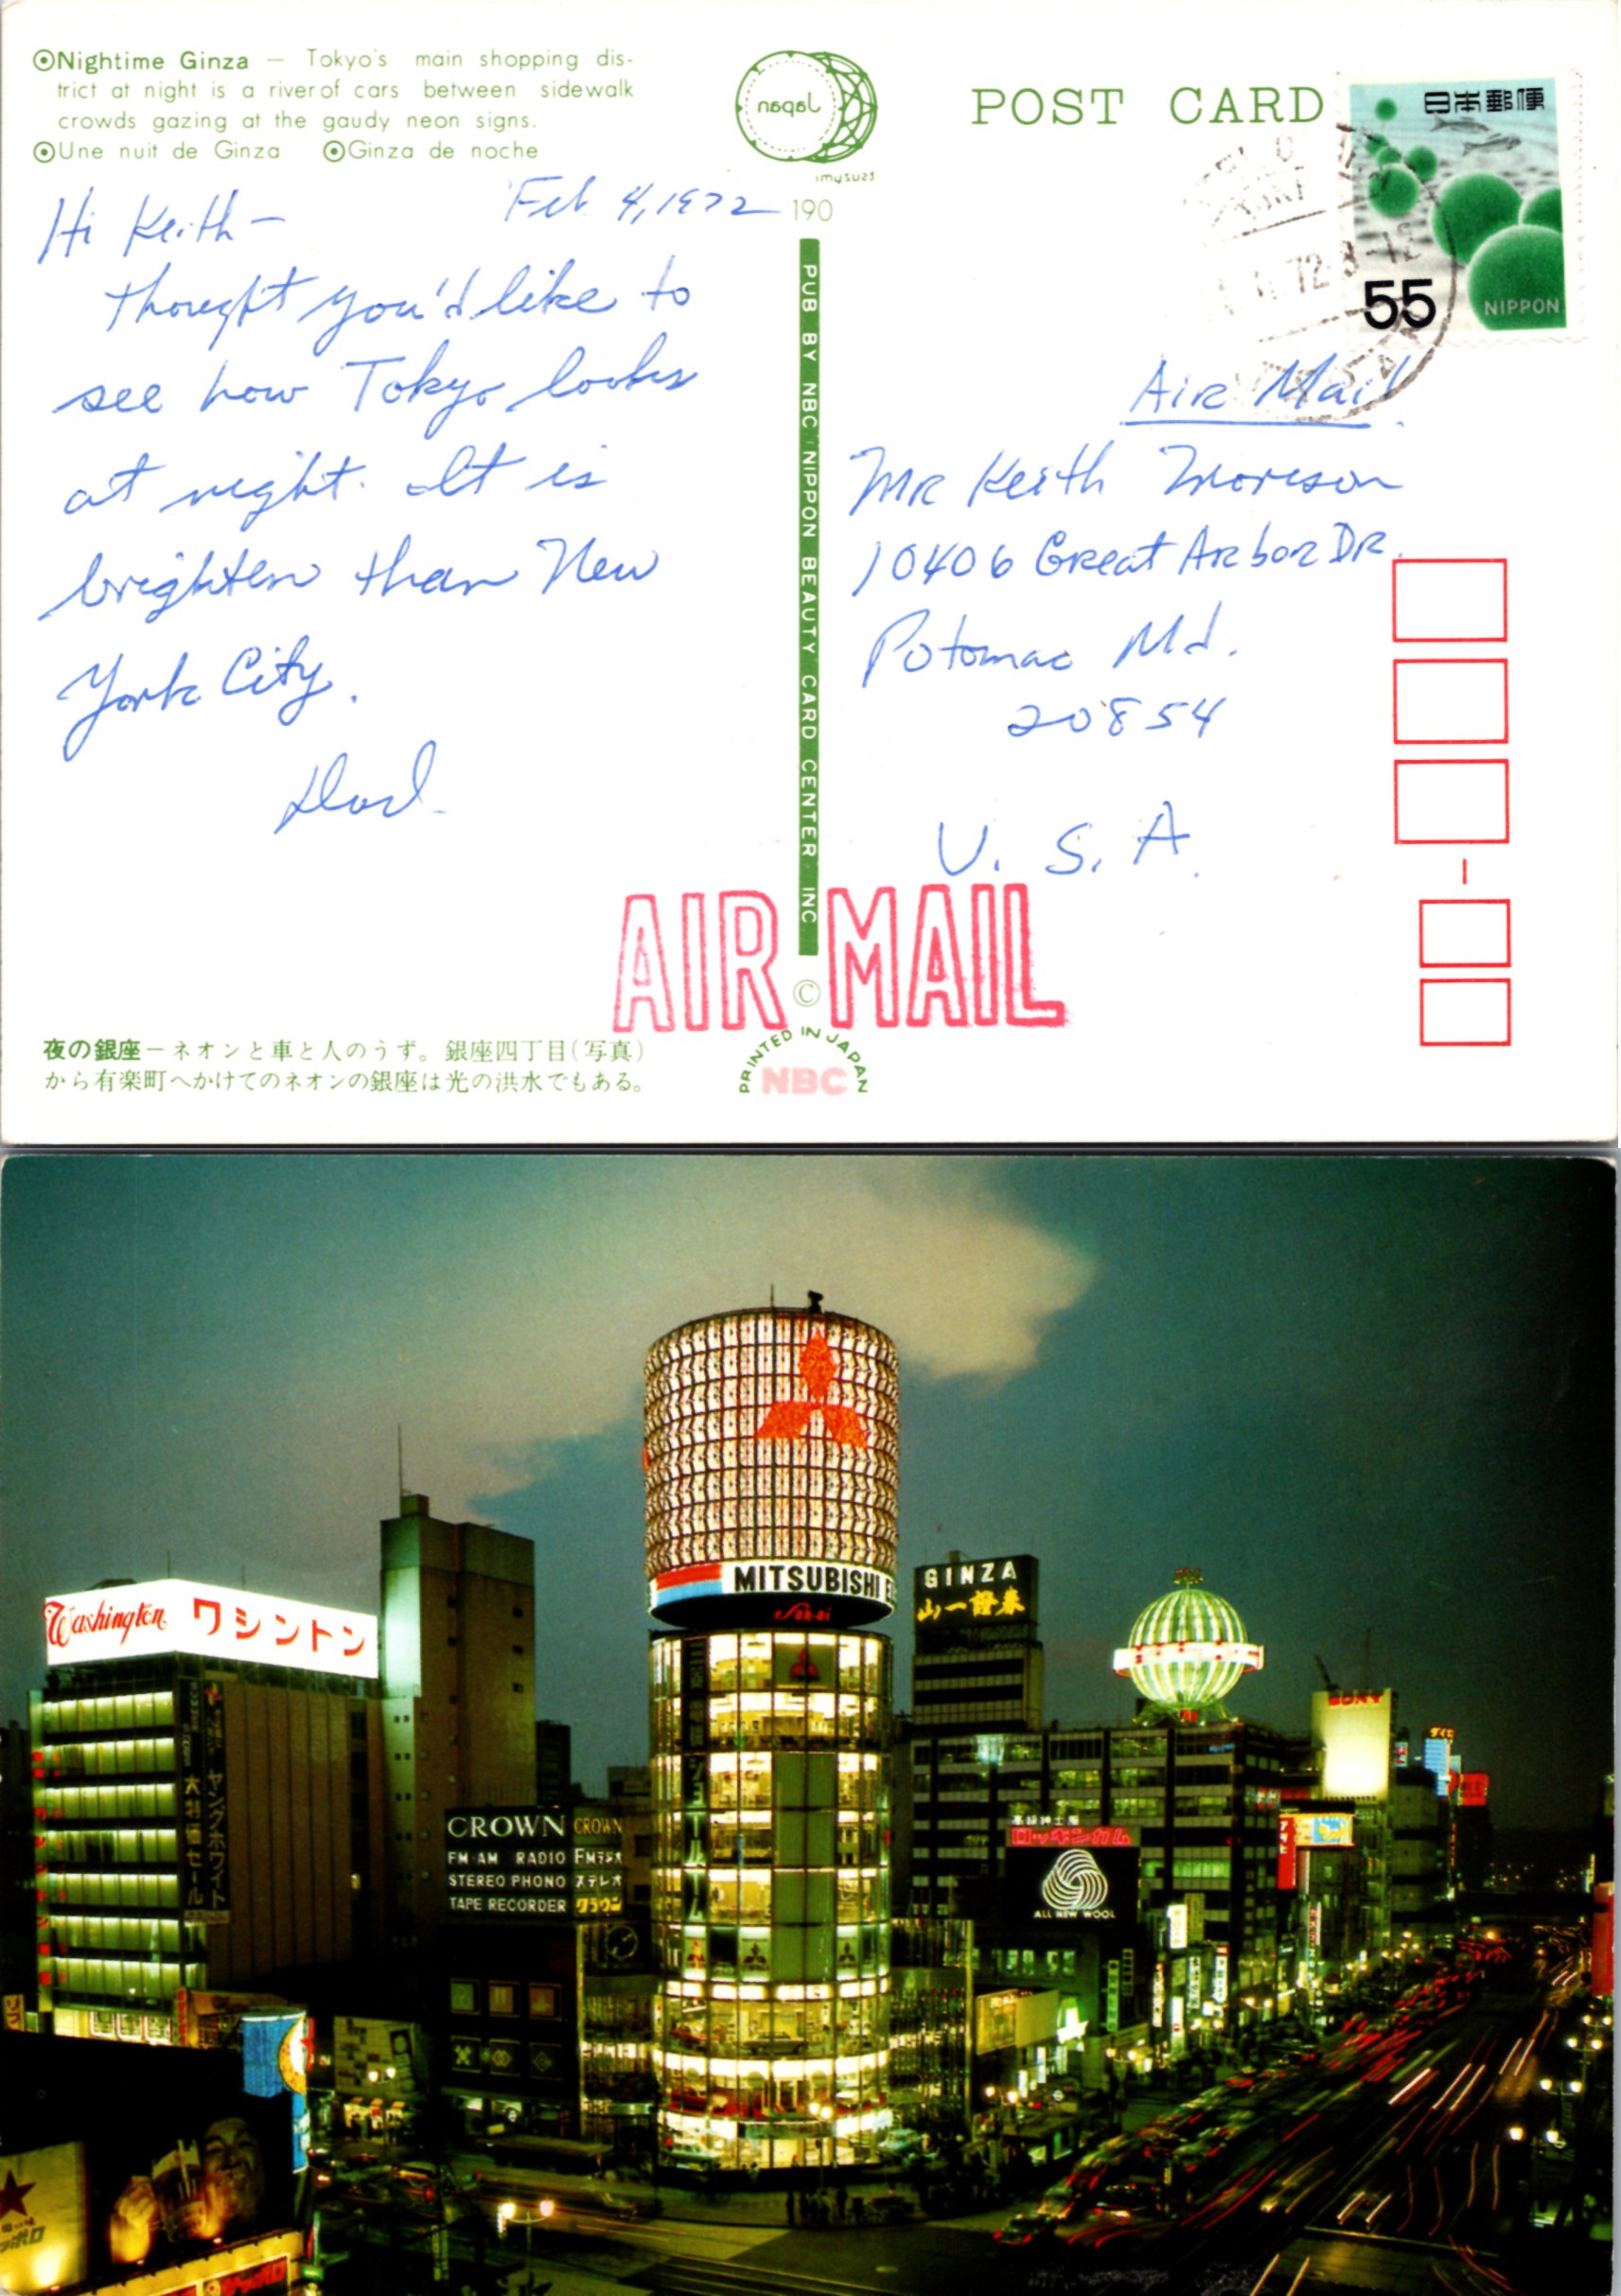 ⦿Nightime Ginza — Tokyo's main shopping dis-
trict at night is a river of cars between sidewalk
crowds gazing at the gaudy neon signs.
⦿Une nuit de Ginza ⦿Ginza de noche
Japan
POST CARD
日本郵便
55
NIPPON
72
190
Feb 4, 1972
Hi Keith —
Thought you'd like to
see how Tokyo looks
at night. It is
brighter than New
York City.
Dad
PUB BY NBC (NIPPON BEAUTY CARD CENTER INC
Air Mail
MR Keith Morison
10406 Great Arbor DR.
Potomac Md.
20854
U. S. A.
AIR MAIL
©
PRINTED IN JAPAN
NBC
夜の銀座－ネオンと車と人のうず。銀座四丁目(写真)
から有楽町へかけてのネオンの銀座は光の洪水でもある。
MITSUBISHI E
San-ai
Washington ワシントン
大特価セール
ヤングホワイト
GINZA
山一證券
SONY
CROWN CROWN
FM·AM RADIO FMラジオ
STEREO PHONO ステレオ
TAPE RECORDER クラウン
高級紳士服
ロッキンガム
ALL NEW WOOL